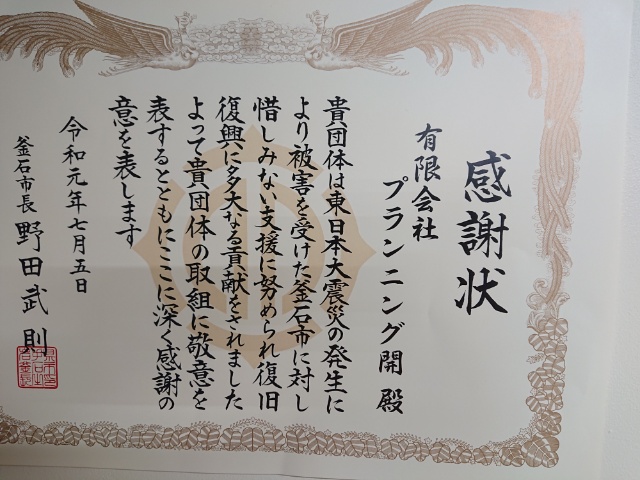 感謝状
有限会社
プランニング開 殿
貴団体は東日本大震災の発生に
より被害を受けた釜石市に対し
惜しみない支援に努められ復旧
復興に多大なる貢献をされました
よって貴団体の取組に敬意を
表するとともにここに深く感謝の
意を表します
令和元年七月五日
釜石市長 野田武則